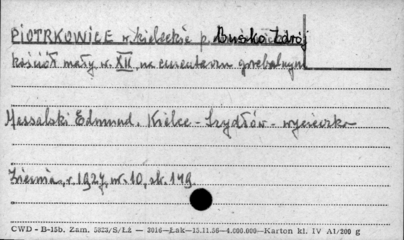 PIOTRKOWICE w. kieleckie p. Busko Zdrój
kościół mały w. XII, na cmentarzu grzebalnym
Massalski Edmund. Kielce - Szydłów - wycieczka
Ziemia, r. 1927, nr. 10, str. 149.
CWD - B-15b. Zam. 5823/S/Łż — 2016—Łak—15.11.56—4.000.000—Karton kl. IV A1/200 g